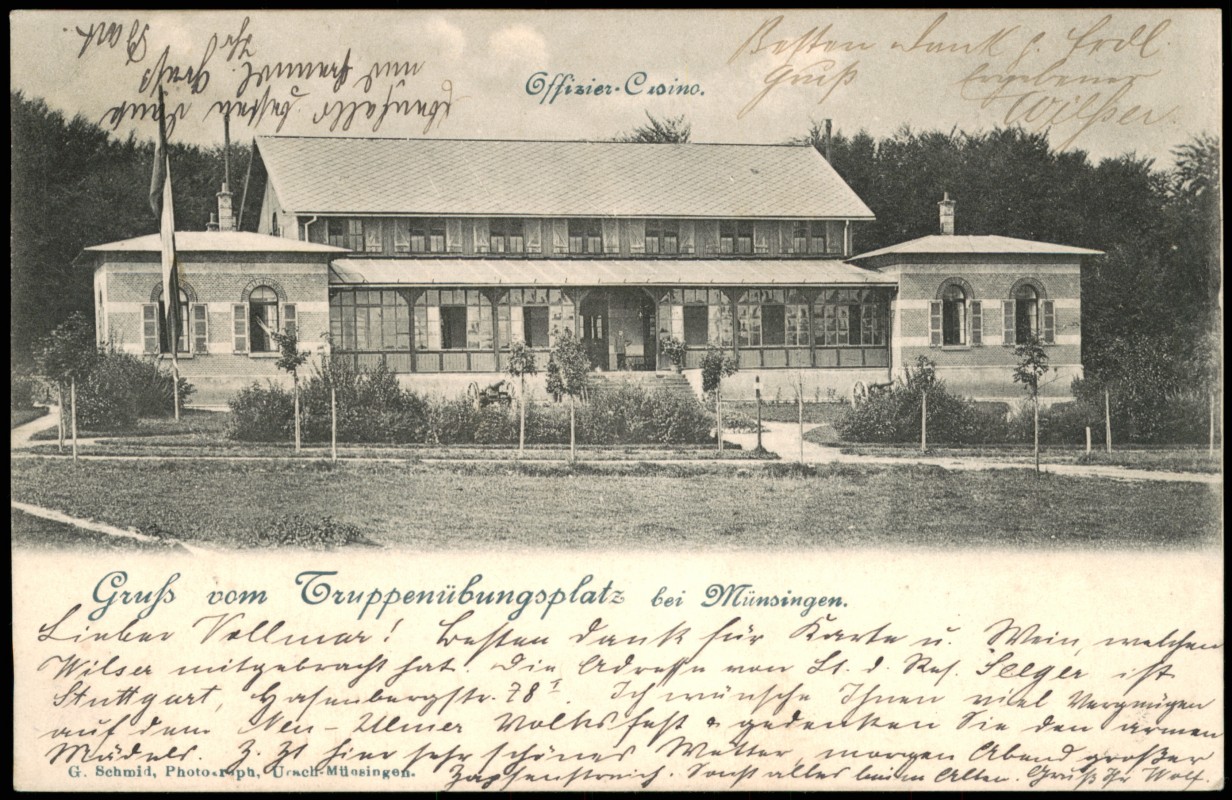 Offizier-Casino.
Besten Dank f. frdl.
Gruß Ergebener
Wilser.
Ebenfalls besten Dank
und freundl. Gruß
Ihr
Gruß vom Truppenübungsplatz bei Münsingen.
Lieber Vollmar! Besten Dank für Karte u. Wein, welchen
Wilser mitgebracht hat. Die Adresse von Lt. d. Res. Seeger ist
Stuttgart, Hasenbergstr. 78I. Ich wünsche Ihnen viel Vergnügen
auf dem Neu-Ulmer Volksfest & gedenken Sie den armen
Mädels. Z. Zt hier sehr schönes Wetter, morgen Abend großer
Zapfenstreich. Sonst alles beim Alten. Gruß Ihr Wolf.
G. Schmid, Photograph, Urach-Münsingen.